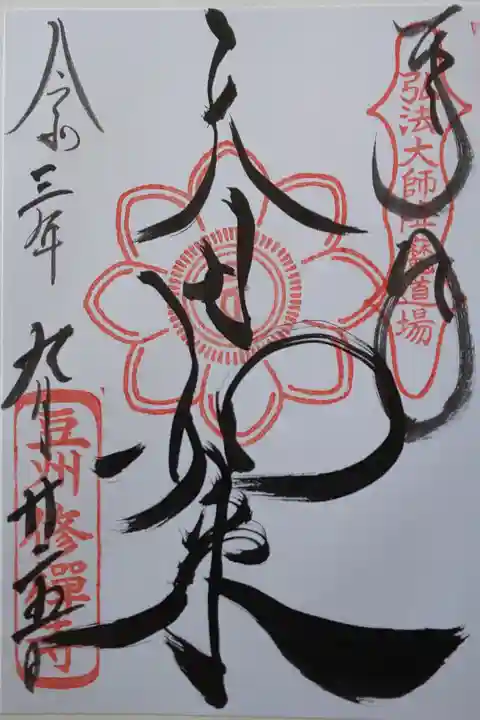 奉拝
弘法大師降魔道場
大日如来
令和三年
九月廿五日
豆州修禪寺